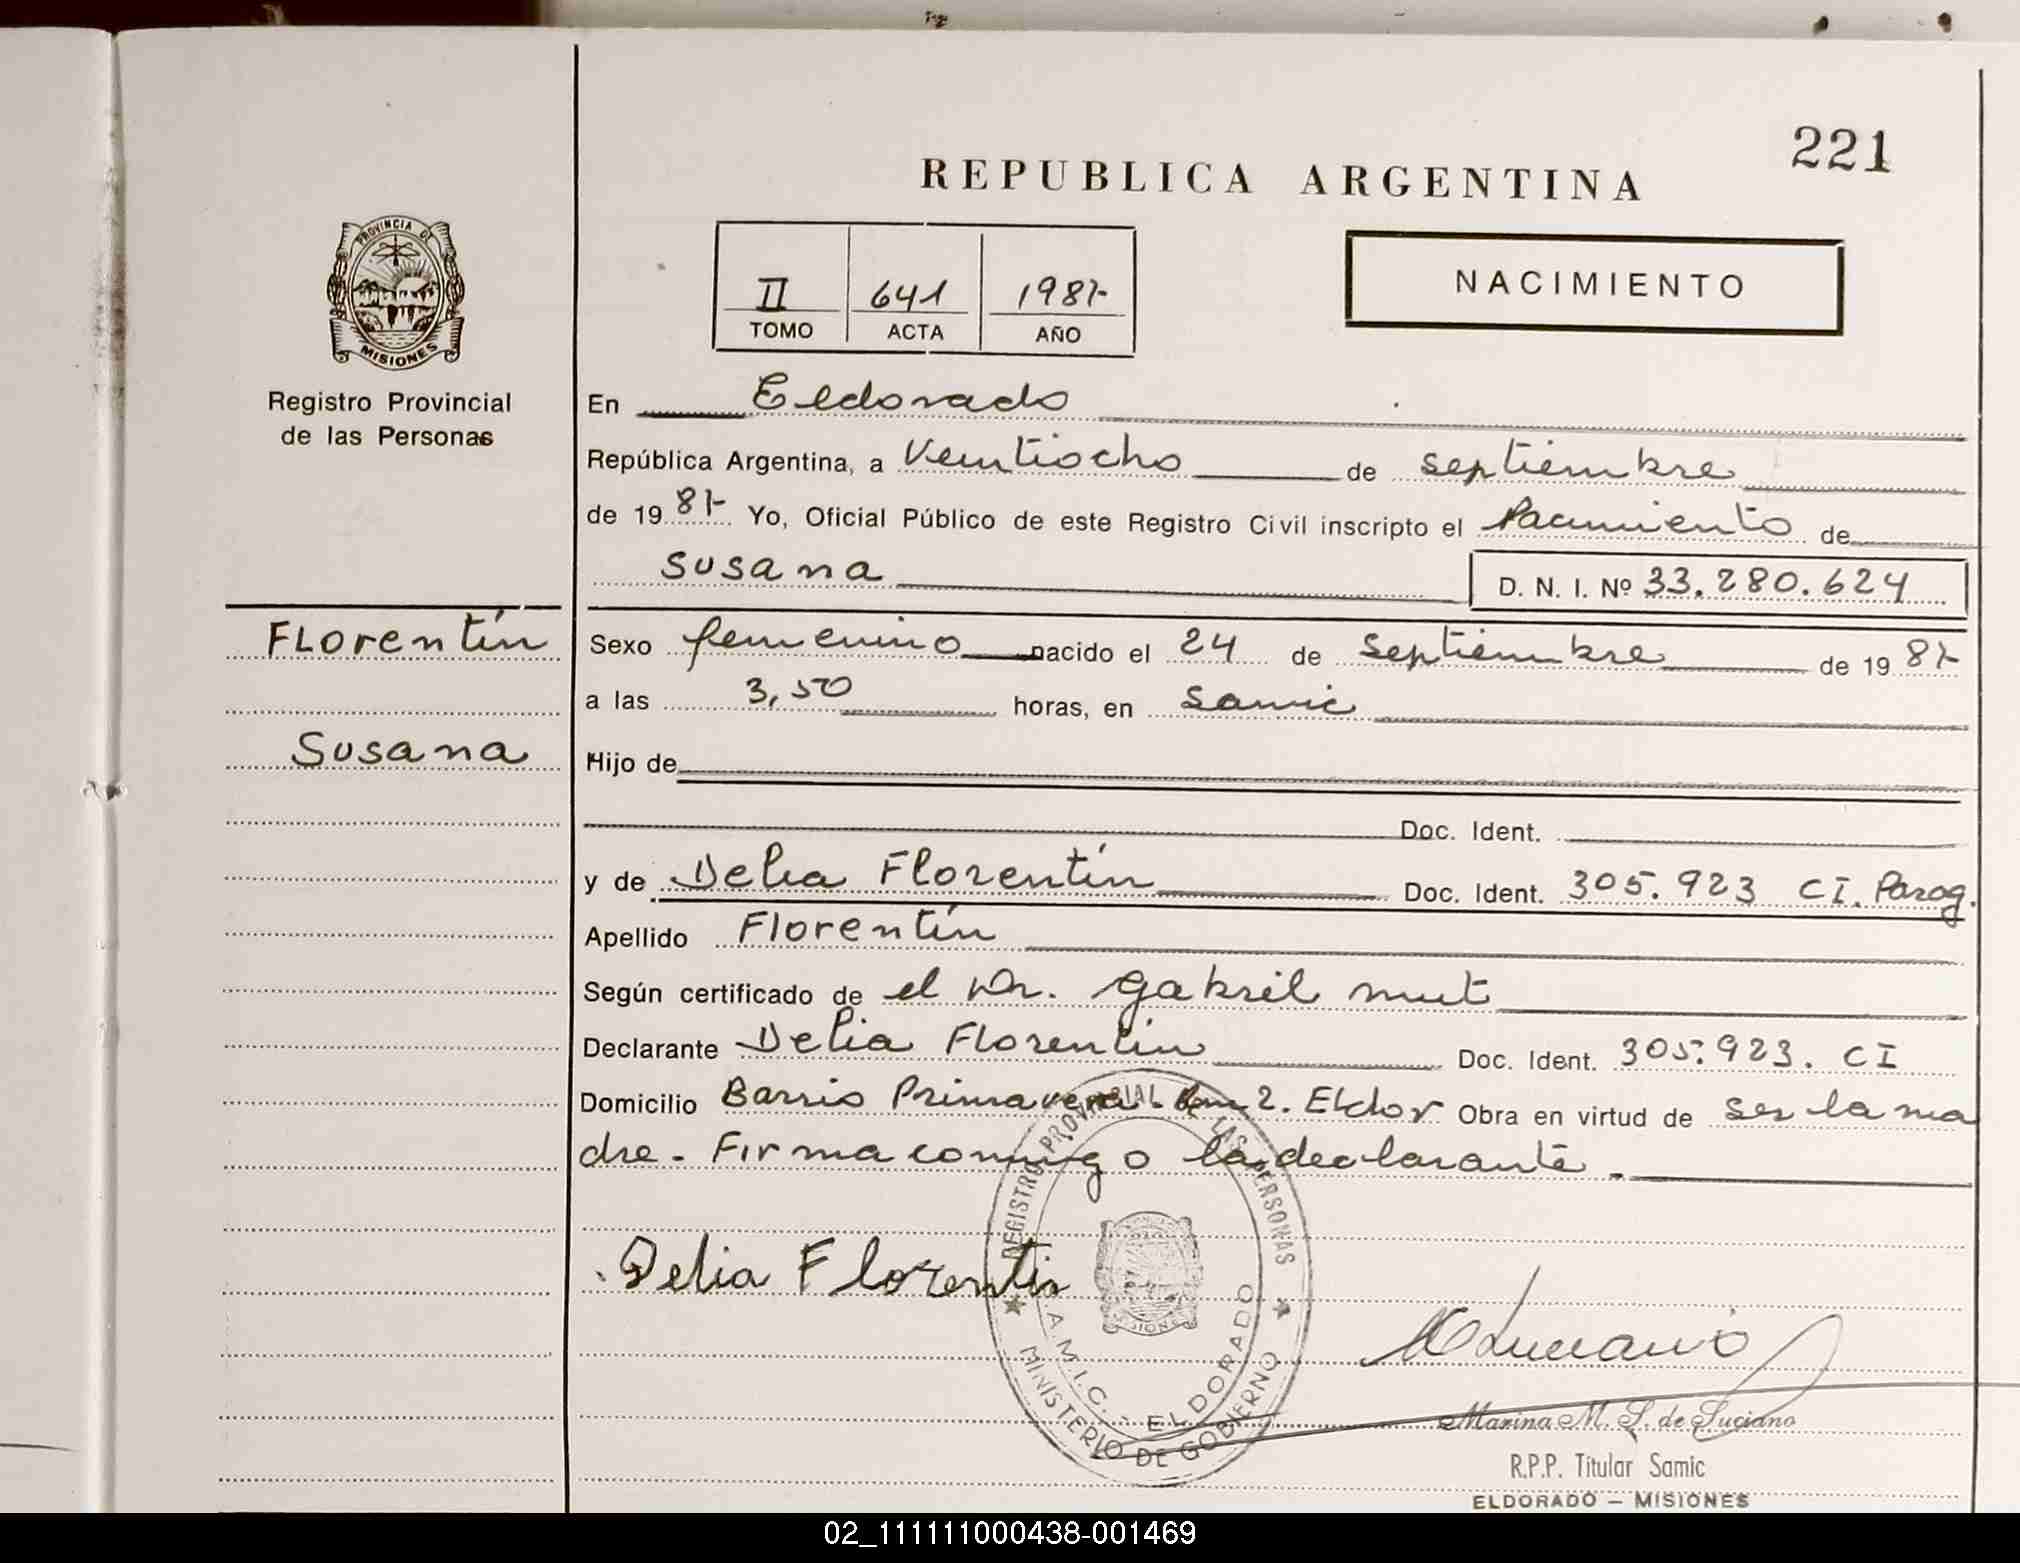 221
REPUBLICA ARGENTINA
II 641 1987
TOMO ACTA AÑO
NACIMIENTO
PROVINCIA DE
MISIONES
Registro Provincial
de las Personas
Florentín
Susana
En Eldorado
República Argentina, a Veintiocho de septiembre
de 1987 Yo, Oficial Público de este Registro Civil inscripto el Nacimiento de
Susana D. N. I. Nº 33.280.624
Sexo femenino nacido el 24 de septiembre de 1987
a las 3,50 horas, en Samic
Hijo de
Doc. Ident.
y de Delia Florentín Doc. Ident. 305.923 CI. Parag.
Apellido Florentín
Según certificado de el Dr. Gabriel Mut
Declarante Delia Florentin Doc. Ident. 305.923. CI
Domicilio Barrio Primavera. Km 2. Eldor Obra en virtud de ser la ma
dre. Firma conmigo la declarante.
Delia Florentin
REGISTRO PROVINCIAL DE LAS PERSONAS
S.A.M.I.C. - ELDORADO
MINISTERIO DE GOBIERNO
MISIONES
Luciano
Marina M. L. de Luciano
R.P.P. Titular Samic
ELDORADO — MISIONES
02_111111000438-001469